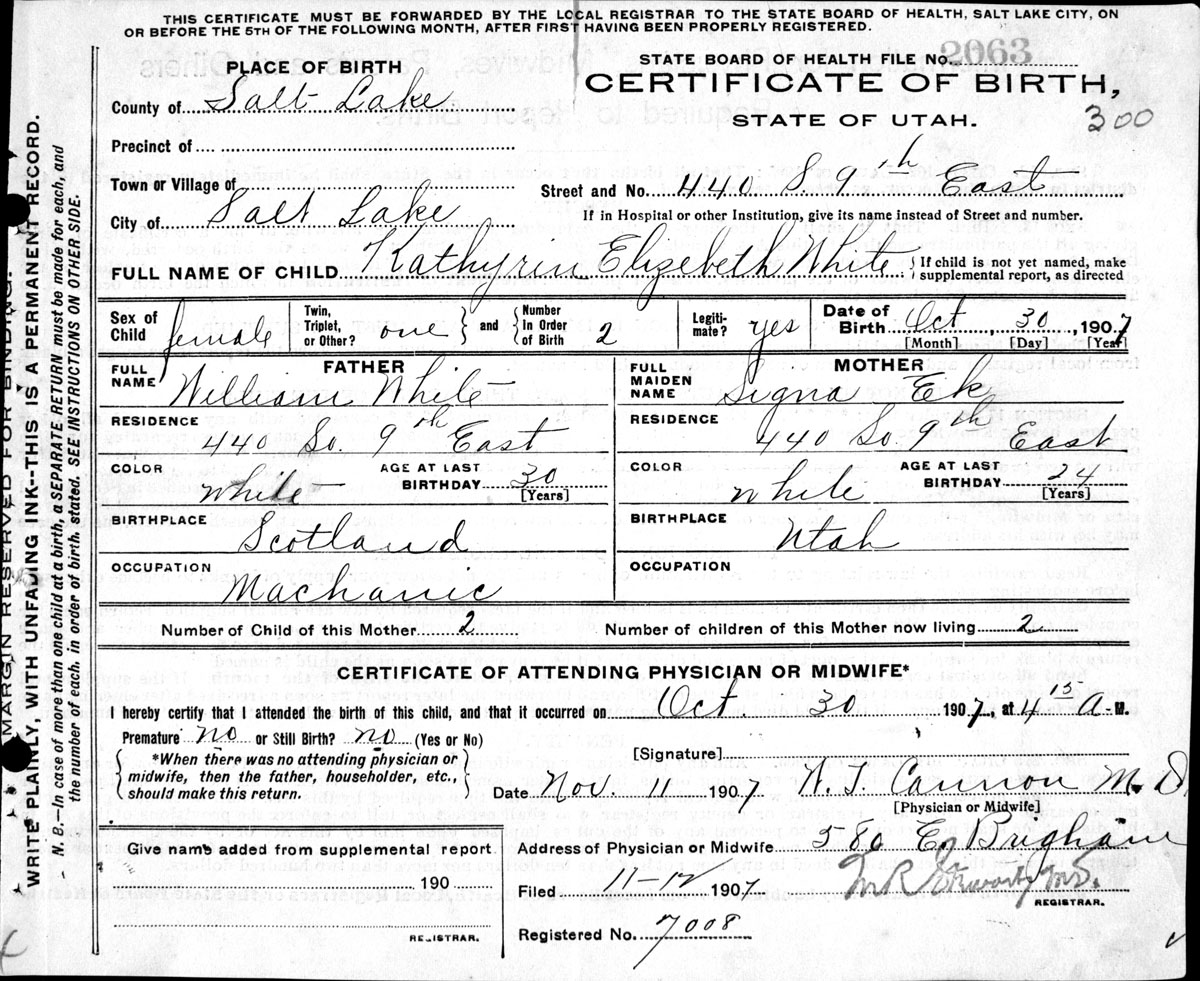 THIS CERTIFICATE MUST BE FORWARDED BY THE LOCAL REGISTRAR TO THE STATE BOARD OF HEALTH, SALT LAKE CITY, ON
OR BEFORE THE 5TH OF THE FOLLOWING MONTH, AFTER FIRST HAVING BEEN PROPERLY REGISTERED.
MARGIN RESERVED FOR BINDING.
WRITE PLAINLY, WITH UNFADING INK--THIS IS A PERMANENT RECORD.
N. B.--In case of more than one child at a birth, a SEPARATE RETURN must be made for each, and
the number of each, in order of birth, stated. SEE INSTRUCTIONS ON OTHER SIDE.
PLACE OF BIRTH
STATE BOARD OF HEALTH FILE No. 2063
CERTIFICATE OF BIRTH,
STATE OF UTAH.
300
County of Salt Lake
Precinct of
Town or Village of
Street and No. 440 S 9th East
City of Salt Lake
If in Hospital or other Institution, give its name instead of Street and number.
FULL NAME OF CHILD Kathyrin Elizebeth White { If child is not yet named, make
supplemental report, as directed
Sex of Child female Twin, Triplet, or Other? one } and { Number In Order of Birth 2 Legitimate? yes Date of Birth Oct, 30, 1907
[Month] [Day] [Year]
FATHER
MOTHER
FULL NAME William White
FULL MAIDEN NAME Signa Ek
RESIDENCE 440 So. 9th East
RESIDENCE 440 So. 9th East
COLOR White AGE AT LAST BIRTHDAY 30 [Years]
COLOR White AGE AT LAST BIRTHDAY 24 [Years]
BIRTHPLACE Scotland
BIRTHPLACE Utah
OCCUPATION Machanic
OCCUPATION
Number of Child of this Mother 2 Number of children of this Mother now living 2
CERTIFICATE OF ATTENDING PHYSICIAN OR MIDWIFE*
I hereby certify that I attended the birth of this child, and that it occurred on Oct. 30 1907, at 4 15 A-M.
Premature no or Still Birth? no (Yes or No)
[Signature]
{ *When there was no attending physician or
midwife, then the father, householder, etc.,
should make this return. }
Date Nov. 11 1907 W. T. Cannon M.D.
[Physician or Midwife]
Given name added from supplemental report
190
REGISTRAR.
Address of Physician or Midwife 580 E. Brigham
Filed 11-12 1907 M.D.
REGISTRAR.
Registered No. 7008